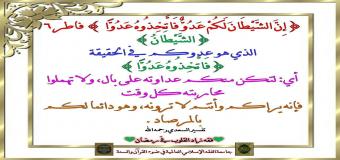 ﴿ إِنَّ الشَّيْطَانَ لَكُمْ عَدُوٌّ فَاتَّخِذُوهُ عَدُوًّا ﴾ فاطر٦
﴿ الشَّيْطَانُ ﴾
الذي هو عدوكم في الحقيقة
﴿ فَاتَّخِذُوهُ عَدُوًّا ﴾
أي: لتكن منكم عداوته على بال، ولا تهملوا
محاربته كل وقت
فإنه يراكم وأنتم لا ترونه، وهو دائما لكم
بالمرصاد.
تفسير السعدي رحمه الله
القلوب في رمضان